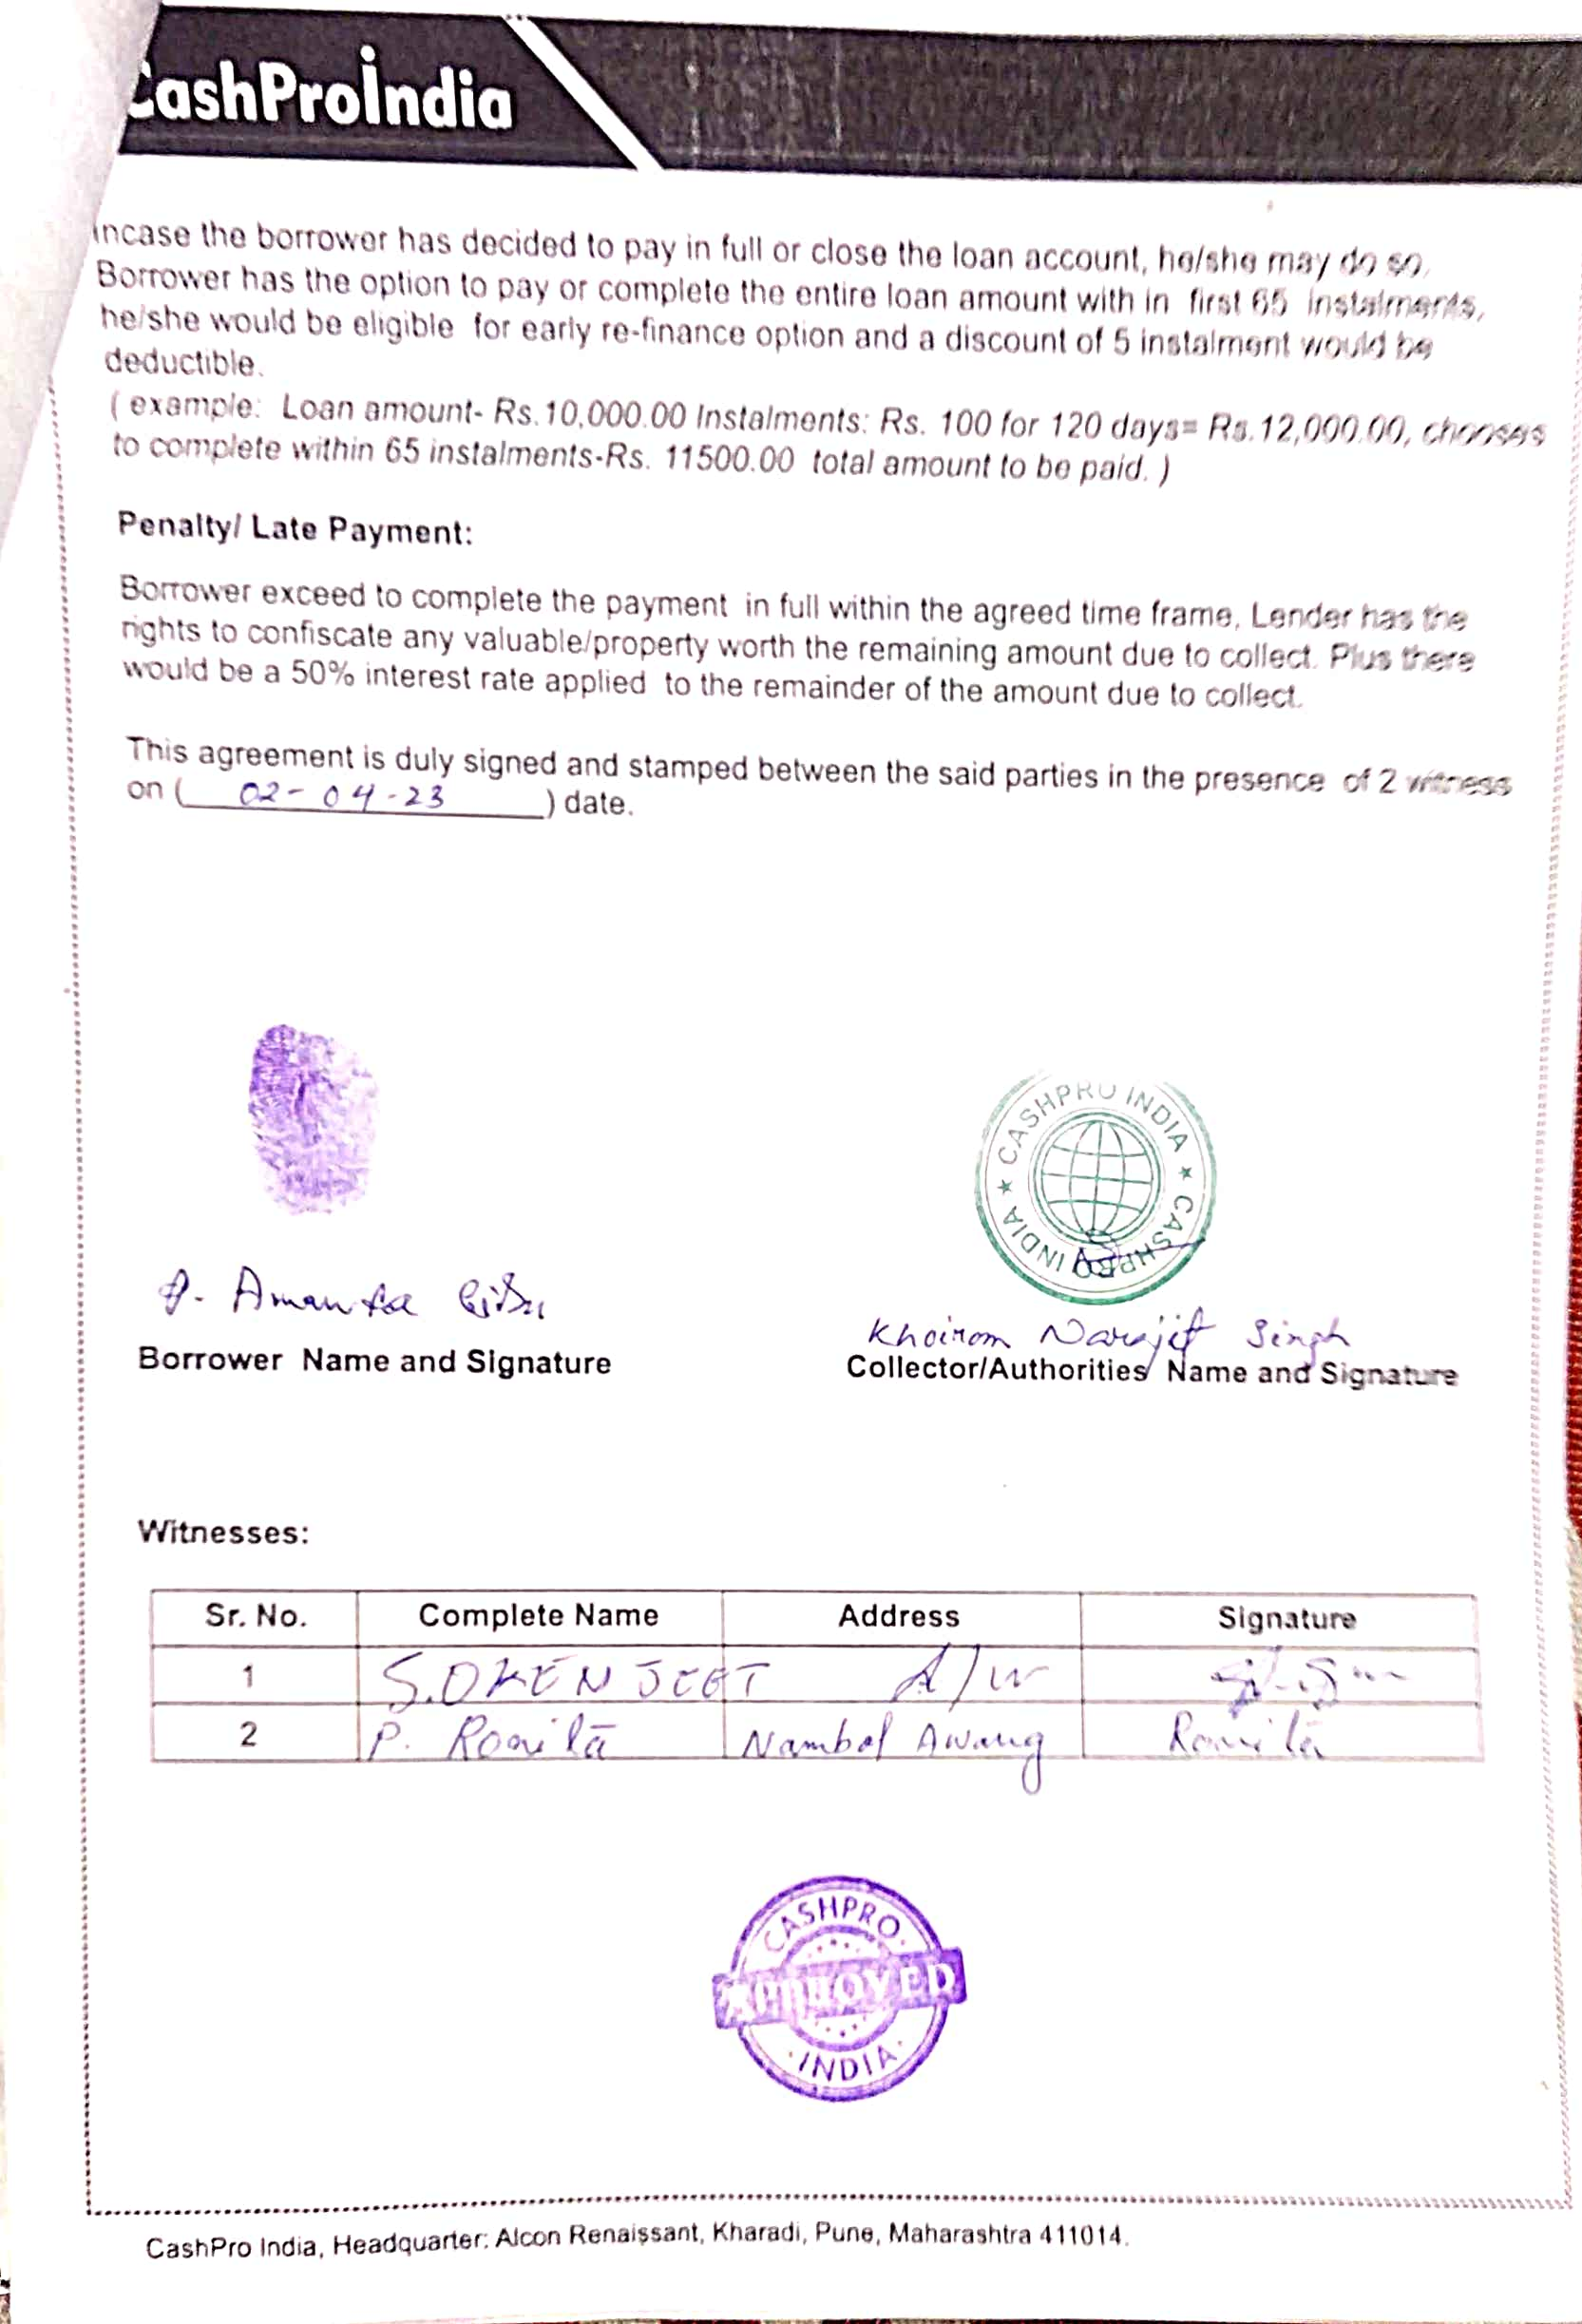 CashProIndia
Incase the borrower has decided to pay in full or close the loan account, he/she may do so.
Borrower has the option to pay or complete the entire loan amount with in first 65 instalments,
he/she would be eligible for early re-finance option and a discount of 5 instalment would be
deductible.
( example: Loan amount- Rs.10,000.00 Instalments: Rs. 100 for 120 days= Rs.12,000.00, chooses
to complete within 65 instalments-Rs. 11500.00 total amount to be paid. )
Penalty/ Late Payment:
Borrower exceed to complete the payment in full within the agreed time frame, Lender has the
rights to confiscate any valuable/property worth the remaining amount due to collect. Plus there
would be a 50% interest rate applied to the remainder of the amount due to collect.
This agreement is duly signed and stamped between the said parties in the presence of 2 witness
on ( 02-04-23 ) date.
CASHPRO INDIA ★ CASHPRO INDIA ★
Khoirom Narajit Singh
Borrower Name and Signature
Collector/Authorities Name and Signature
Witnesses:
Sr. No. Complete Name Address Signature
1 S.OKEN JEET A/W
2 P. Romita Nambol Awang Romita
CASHPRO
APPROVED
INDIA
CashPro India, Headquarter: Alcon Renaissant, Kharadi, Pune, Maharashtra 411014.